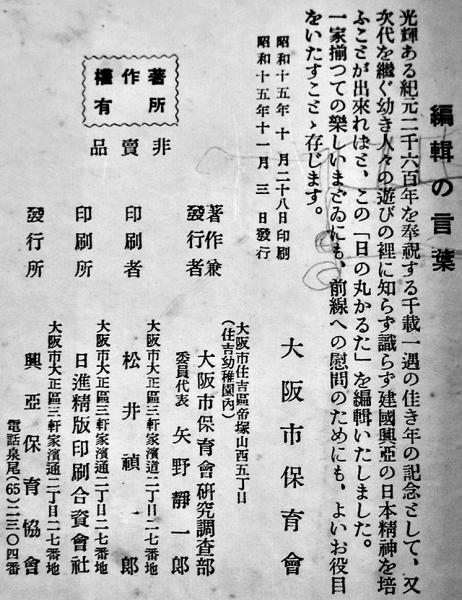 編輯の言葉
光輝ある紀元二千六百年を奉祝する千載一遇の佳き年の記念として、又
次代を繼ぐ幼き人々の遊びの裡に知らず識らず建國興亞の日本精神を培
ふことが出來ればと、この「日の丸かるた」を編輯いたしました。
一家揃つての樂しいまどゐにも、前線への慰問のためにも、よいお役目
をいたすことゝ存じます。
大阪市保育會
昭和十五年十月二十八日印刷
昭和十五年十一月三日發行
著作所有權
非賣品
著作兼發行者
大阪市住吉區帝塚山西五丁目
(住吉幼稚園內)
大阪市保育會硏究調査部
委員代表 矢野靜一郎
印刷者
大阪市大正區三軒家濱通二丁目二七番地
松井禎郎
印刷所
大阪市大正區三軒家濱通二丁目二七番地
日進精版印刷合資會社
發行所
大阪市大正區三軒家濱通二丁目二七番地
興亞保育協會
電話泉尾(65)二三〇四番